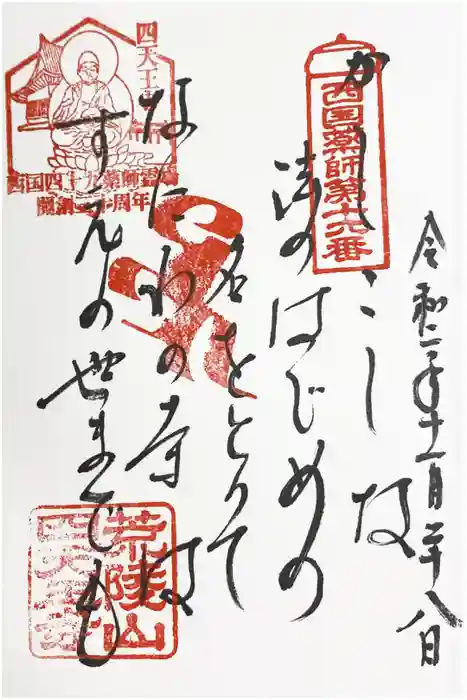 令和二年十一月二十八日
西国薬師第十六番
かしこしな
法のはじめの
名をとりて
なにわの寺は
すえの世までも
四天王寺
西国四十九薬師霊場
開創三十周年
荒陵山
四天王寺